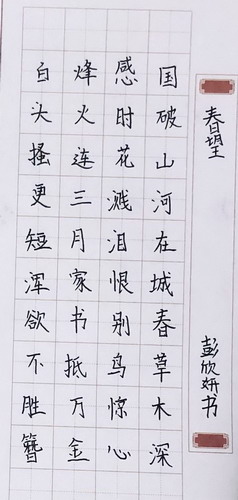 春望
彭欣妍书
国破山河在城春草木深
感时花溅泪恨别鸟惊心
烽火连三月家书抵万金
白头搔更短浑欲不胜簪